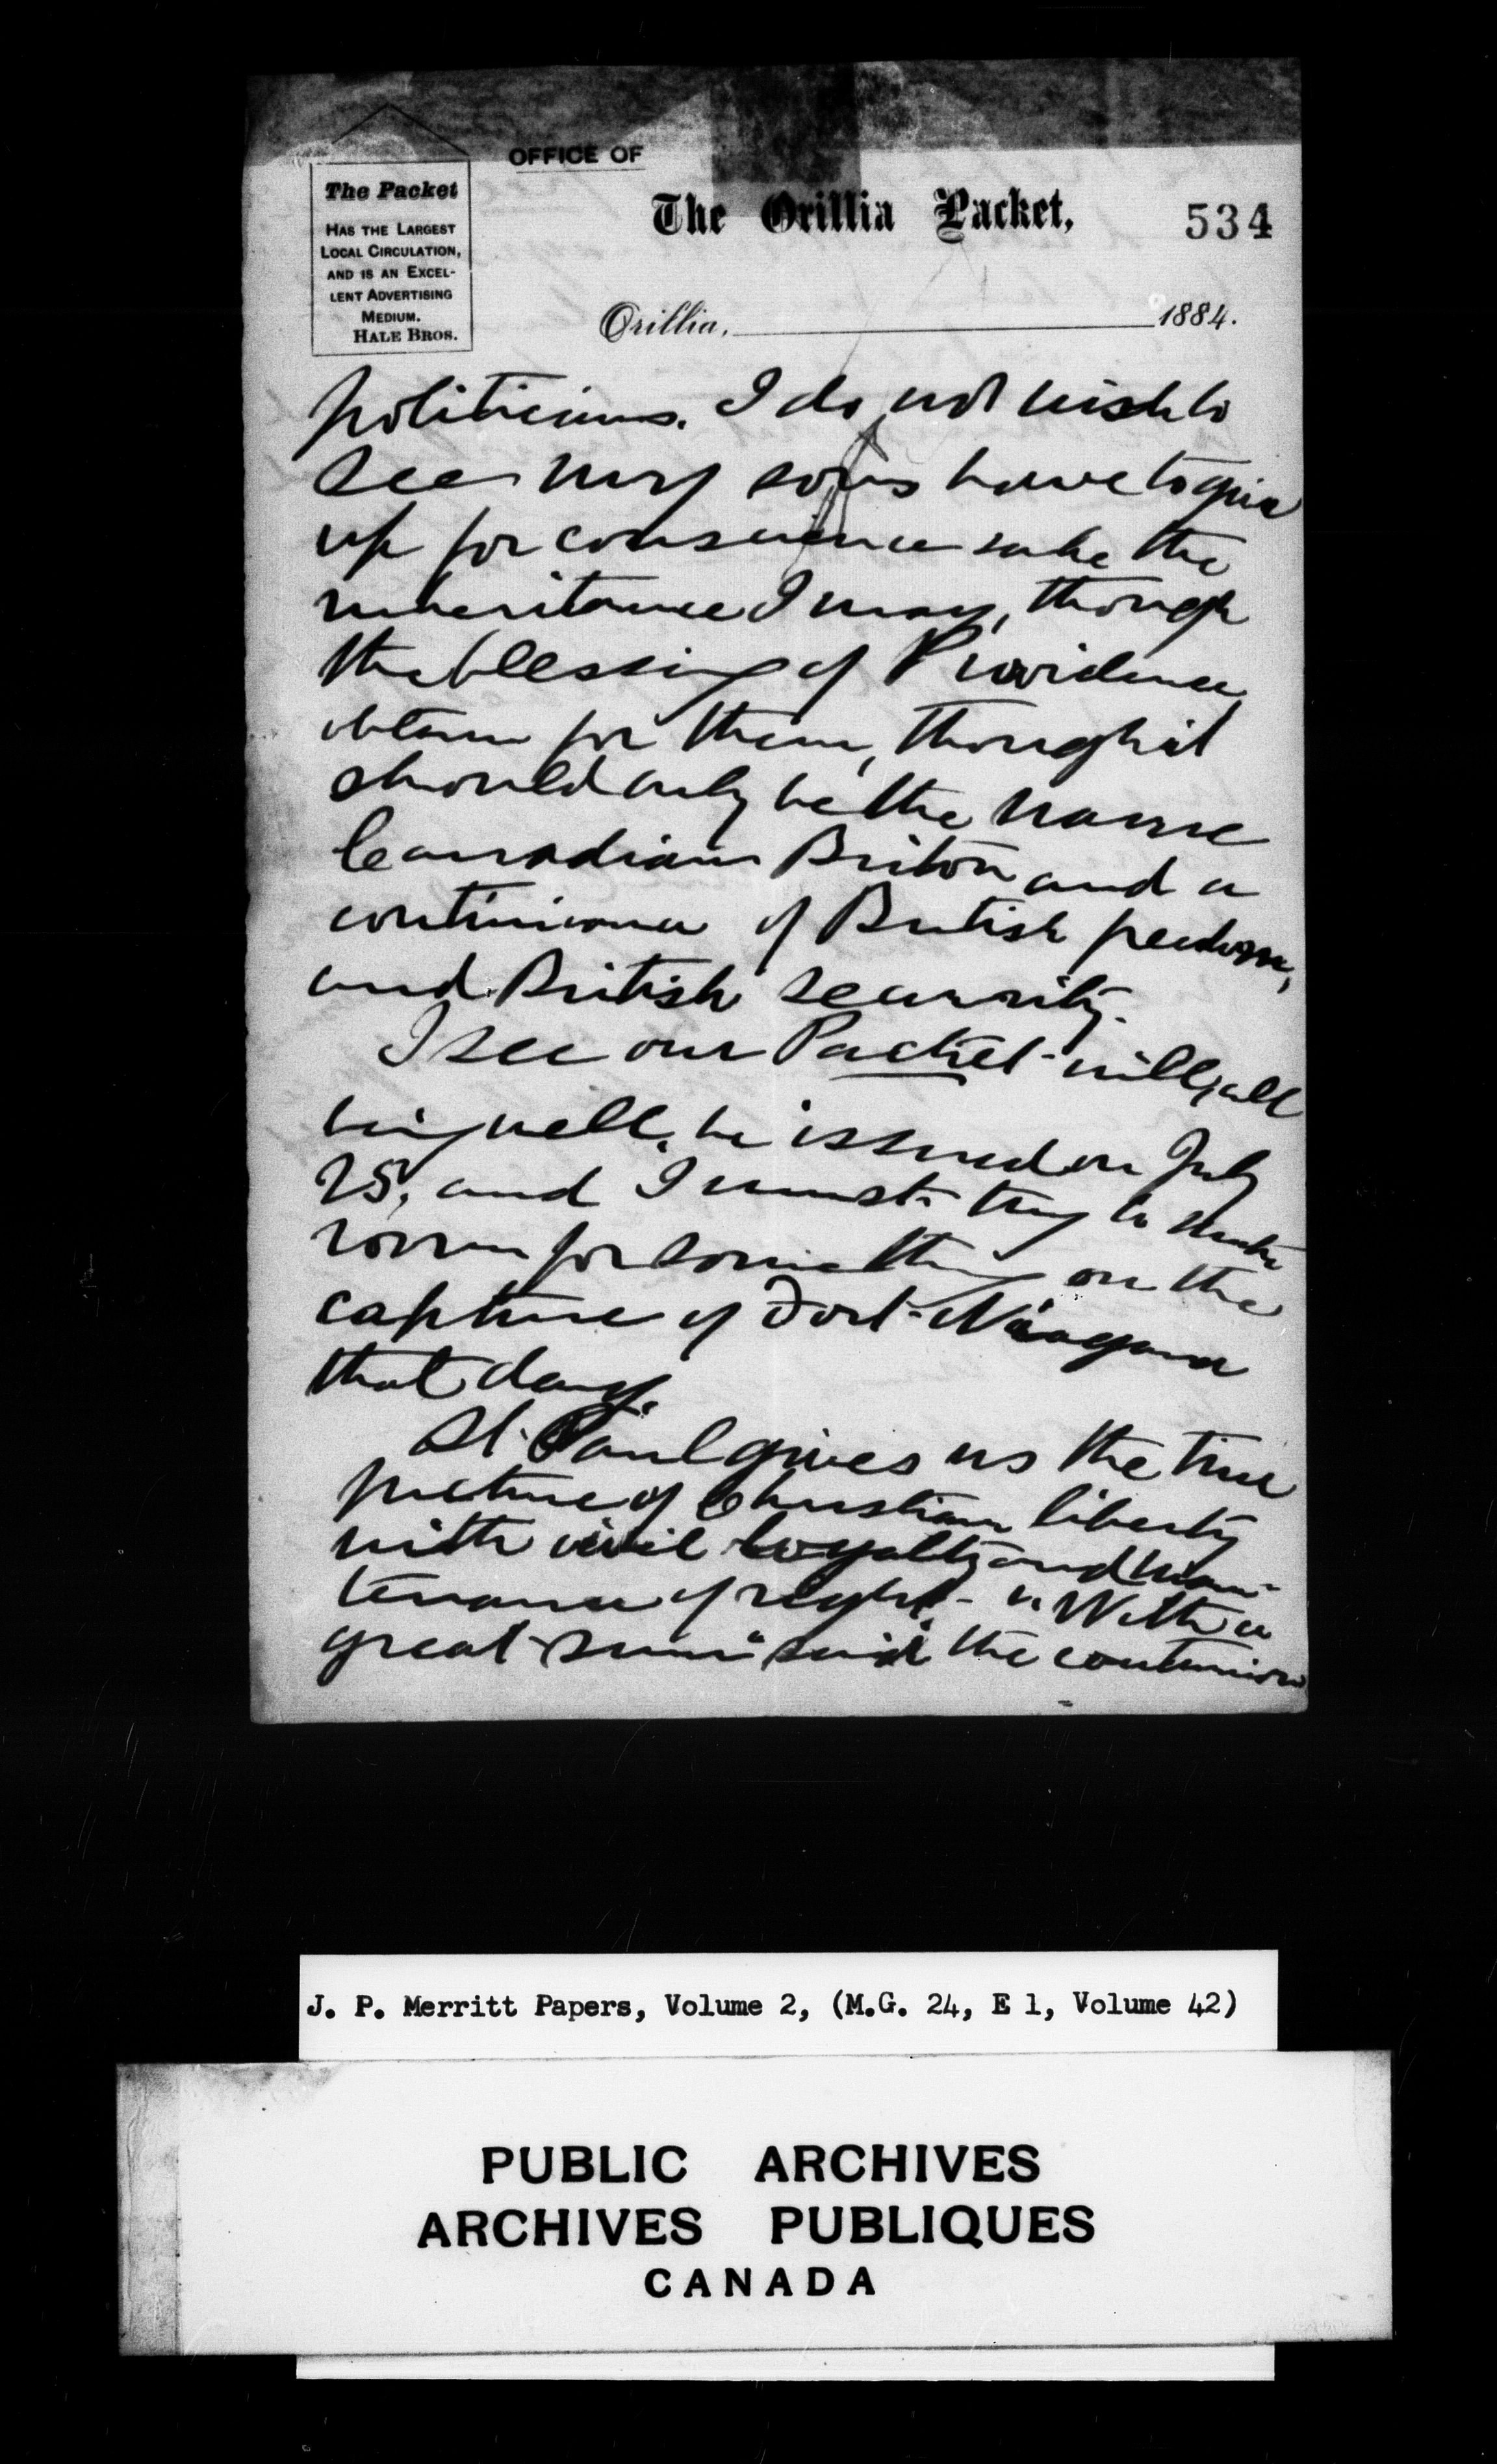 OFFICE OF
The Packet
HAS THE LARGEST
LOCAL CIRCULATION,
AND IS AN EXCEL-
LENT ADVERTISING
MEDIUM.
HALE BROS.
The Orillia Packet,
534
Orillia, 1884.
politicians. I do not wish to
see my sons have to give
up for conscience sake the
inheritance I may, through
the blessing of Providence,
obtain for them, though it
should only be the name
Canadian Briton and a
continuance of British freedom,
and British security.
I see our Packet will, all
being well, be issued on July
25, and I must try to make
room for something on the
capture of Fort Niagara
that day.
St. Paul gives us the true
picture of Christian liberty
with civil loyalty and main-
tenance of right. "With a
great sum" said the centurion
J. P. Merritt Papers, Volume 2, (M.G. 24, E 1, Volume 42)
PUBLIC ARCHIVES
ARCHIVES PUBLIQUES
CANADA